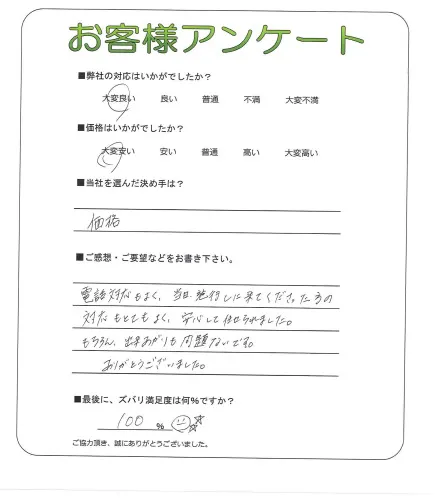 お客様アンケート
■弊社の対応はいかがでしたか？
大変良い 良い 普通 不満 大変不満
■価格はいかがでしたか？
大変安い 安い 普通 高い 大変高い
■当社を選んだ決め手は？
価格
■ご感想・ご要望などをお書き下さい。
電話対応もよく、当日施行しに来てくださった方の
対応もとてもよく、安心して任せられました。
もちろん、出来あがりも問題ないです。
ありがとうございました。
■最後に、ズバリ満足度は何%ですか？
100 %
ご協力頂き、誠にありがとうございました。